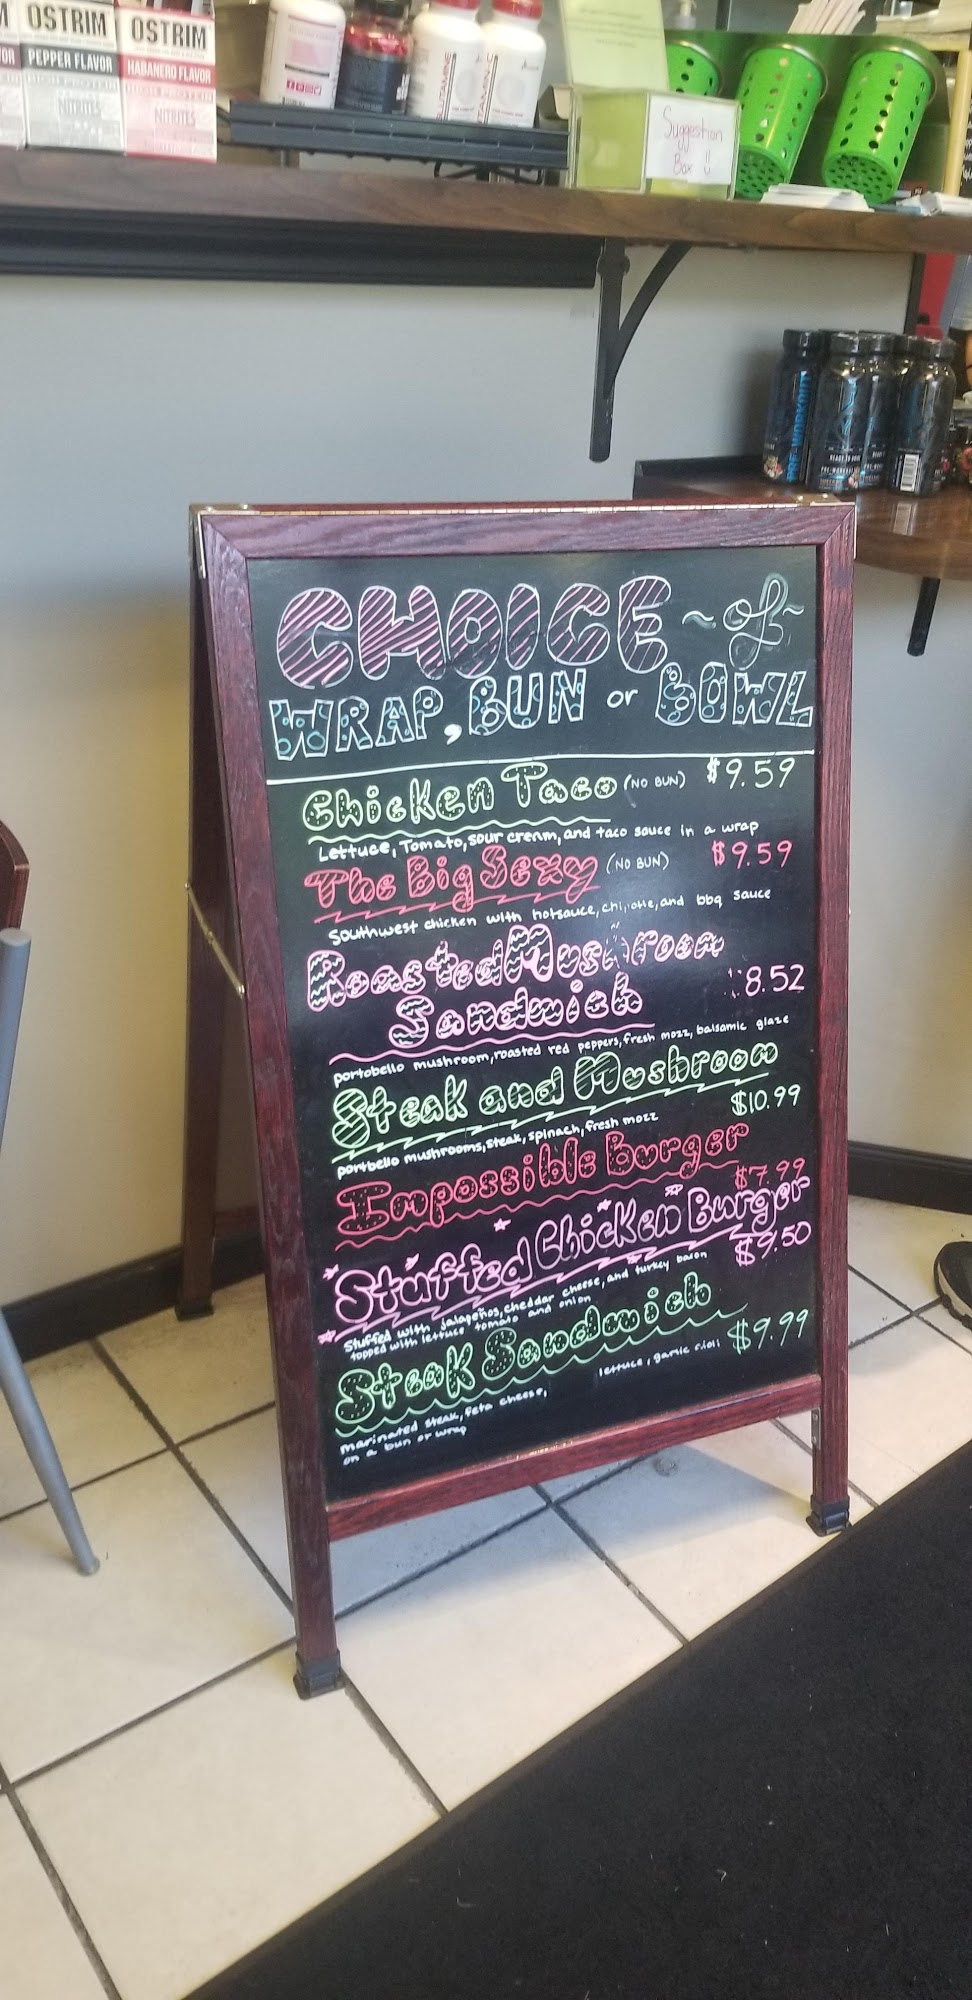 OSTRIM
PEPPER FLAVOR
NITRITES
OSTRIM
HABANERO FLAVOR
NITRITES
GLUTAMINE
Suggestion
Box
PRE-WORKOUT
CHOICE ~of~
WRAP, BUN or BOWL
Chicken Taco (NO BUN) $9.59
Lettuce, Tomato, sour cream, and taco sauce in a wrap
The Big Sexy (NO BUN) $9.59
Southwest chicken with hotsauce, chipotle, and bbq sauce
Roasted Mushroom
Sandwich 8.52
portobello mushroom, roasted red peppers, fresh mozz, balsamic glaze
Steak and Mushroom
$10.99
portbello mushrooms, steak, spinach, fresh mozz
Impossible Burger
$7.99
Stuffed Chicken Burger
$9.50
Stuffed with jalapeños, cheddar cheese, and turkey bacon
topped with lettuce tomato and onion
Steak Sandwich $9.99
marinated steak, feta cheese, lettuce, garlic aioli
on a bun or wrap